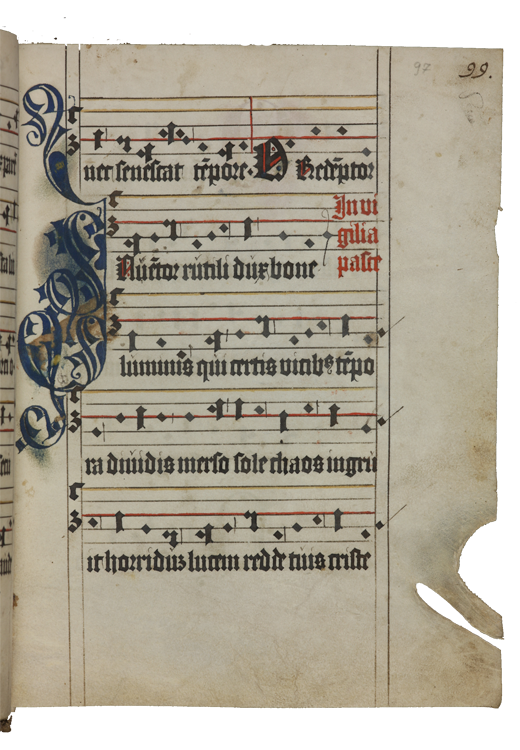 97 99.
uet senescat tēpore. O Redēptor
In vi
gilia
pasce
INuētor rutili dux bone
luminis qui certis vicibꝰ tēpo
ra diuidis merso sole chaos ingru
it horridūz lucem redde tuis criste